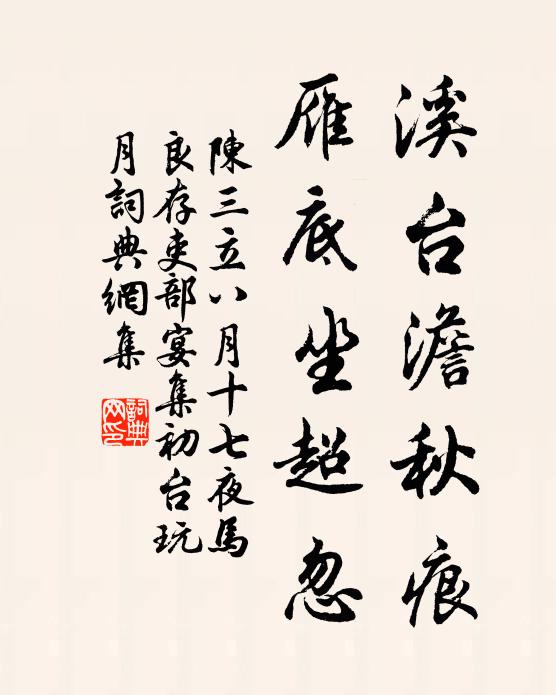 溪台澹秋痕
雁底坐超忽
陳三立八月十七夜馬
良存吏部宴集初台玩
月詞典網集
詞典網印